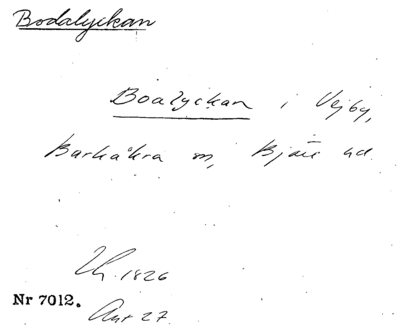 Bodalyckan
Boalyckan i Vejby,
Barkåkra sn, Bjäre hd.
Lh. 1826
Nr 7012.
Avs 27